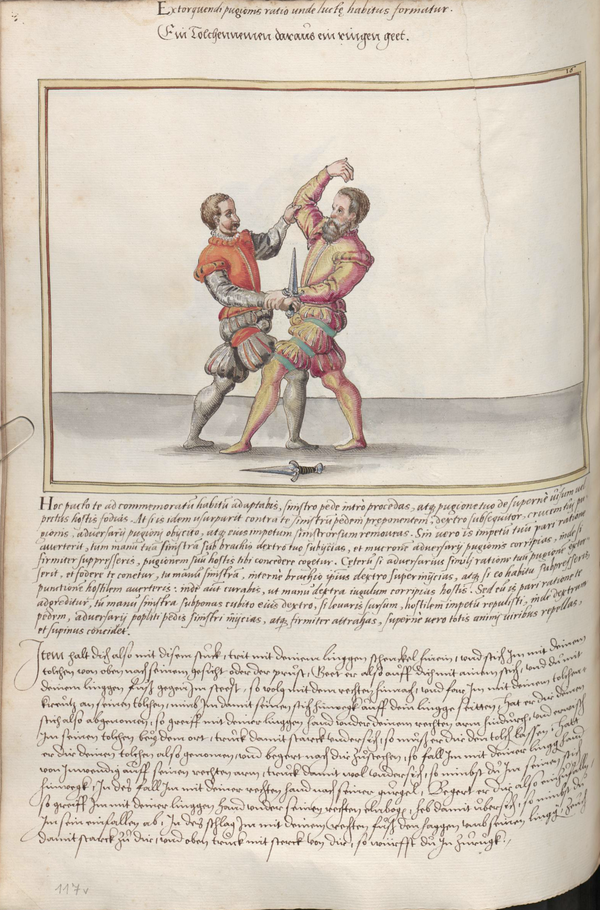 Extorquendi pugionis ratio unde luctę habitus formatur.
Ein Tolchennemen daraus ein ringen geet.
Hoc pacto te ad commemoratū habitū adaptabis, sinistro pede intro procedas, atq, pugione tuo de superne visum vel
pectus hostis fodias. At si is idem usurparit contra te sinistrū pedem preponentem, dextro subsequitor, cruentū pu
gionis, adversarij pugioni obijcito, atq, eius impetum sinistrorsum removeas. Sin vero is impetū tuū pari ratione
averterit, tum manū tuā sinistrā sub brachio dextro tuo subijcias, et mucronē adversarij pugionis corripias, indq, si
firmiter suppresseris, pugionem suū hostis tibi concedere cogetur. Ceterū si adversarius simili ratione tuū pugionē extor
serit, et fodere te conetur, tu manū sinistrā, internę brachio ipsius dextro superinijcias, atq, si eo habitu suppresseris,
punctionē hostilem averteris: inde aūt curabis, ut manu dextra iugulum corripias hostis. Sed eū is pari ratione te
adoriretur, tu manū sinistrā supponas cubito eius dextro, si levaris sursum, hostilem impetū repulisti, inde dextram
pedem, adversarij popliti pedis sinistri inijcias, atq, firmiter attrahas, superne vero totis animi viribus repellas,
et supinus concidet.
Item halt dich also mit disem stuck, trit mit deinem linggen schenckel hinein, und stich Im mit deinem
tolchen von oben nach seinem gesicht oder der prust, Geet er also auff dich mit ainem stich, und du mit
deinem linggen fuß gegen Im steest, so volg mit dem rechten hinnach, und far Im mit deinem tolchen
kreutz an seinen tolchen, nimb Im damit seinen stich hinweck auff dein lingge seitten, hat er dir deinen
stich also abgenomen, so greiff mit deiner linggen hand under deinem rechten arm hindurch, und erwisch
Im seinen tolchen bey dem ort, truck damit starck undersich, so muß er dir den tolch lassen, hatt
er dir deinen tolchen also genomen, und begert nach dir zustechen, so fall Im mit deiner lingg hand
von Inwendig auff seinen rechten arm, truck damit wol undersich, so nimbst du Im seinen stich
hinweck, In des fall Im mit deiner rechten hand nach seiner gurgel, Begert er dir also einzufallen,
so greiff Im mit deiner linggen hand under seinen rechten elnboge, heb damit übersich, so nimbst du
Im sein einfallen ab, In des schlag Im mit deinem rechten fuß den haggen umb seinen lingg, zeuch
damit starck zu dir, und oben truck mit sterck von dir, so würffst du In zuruck.
117v